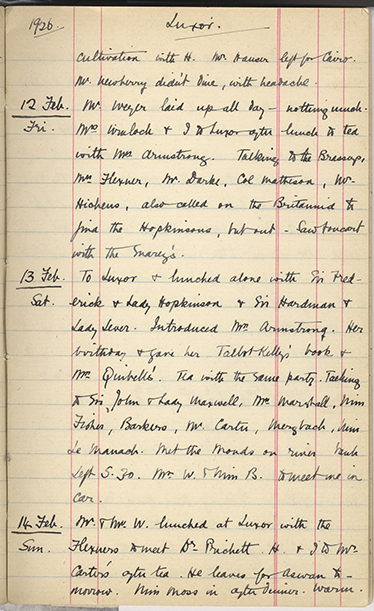 1926. Luxor.
cultivation with H. Mr Hauser left for Cairo.
Mr. Newberry didn't dine, with headache.
12 Feb. Mr Weyer laid up all day – nothing much.
Fri. Mrs Wmlock & I to Luxor after lunch to tea
with Mrs Armstrong. Talking to the Brasseys,
Mrs Flexner, Mr. Darke, Col Matheson, Mr
Hichens, also called on the Britannid to
find the Hopkinsons, but out – Saw
with the
13 Feb. To Luxor & lunched alone with Sir Fred-
Sat. erick & Lady Hopkinson & Sir Hardman &
Lady Lever. Introduced Mrs Armstrong. Her
birthday & gave her Talbot Kelly's book &
Mr Quibell's. Tea with the same party. Talking
to Sir John & Lady Maxwell, Mr Marshall, Miss
Fisher, Barkers, Mr Carter, Merzbach, Mme
Le Manach. Met the Monds on river
left 5.30. Mr. W. & Miss B. to meet me in
car.
14 Feb. Mr. & Mrs W. lunched at Luxor with the
Sun. Flexners to meet Dr Prichett. H. & I to Mr
Carter's after tea. He leaves for Aswan to-
morrow. Miss Moss in after dinner. Warm.